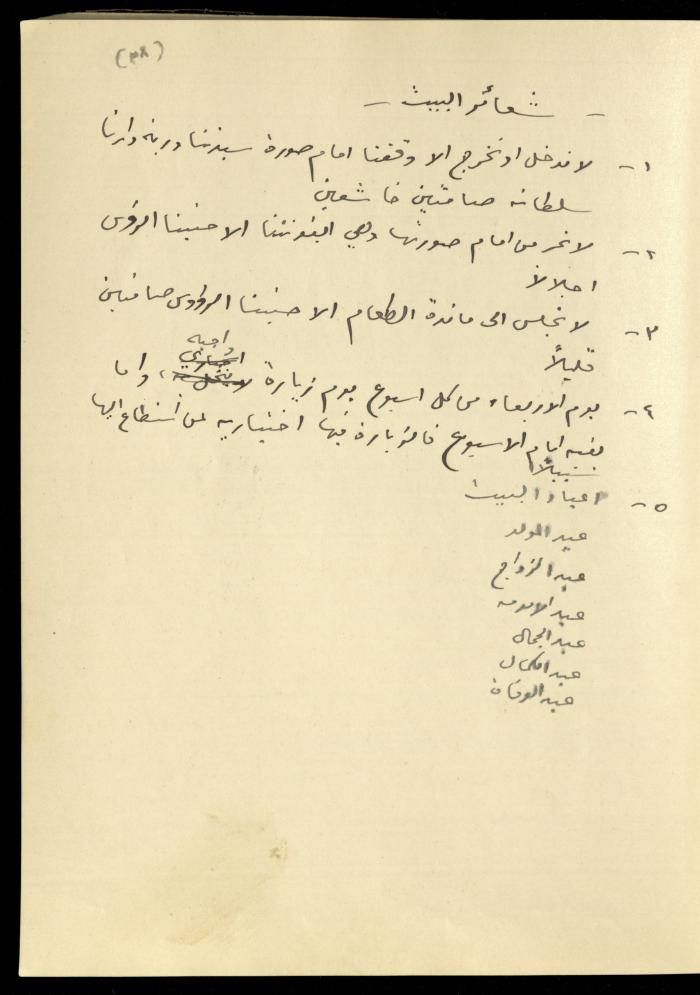 (٣٨)
- شعائر البيت -
١- لا ندخل او نخرج الا وقفنا امام صورة سيدتنا وربة دارنا
سلطانه صامتين خاشعين
٢- لا نمر من امام صورتها وهي ايقونتنا الا حنينا الرؤس
اجلالاً
٣- لا نجلس الى مائدة الطعام الا حنينا الرؤوس صامتين
قليلاً
واجبه
٤- يوم الاربعاء من كل اسبوع يوم زيارة ، واما
بقية ايام الاسبوع فالزيارة فيها اختيارية لمن استطاع اليها
سبيلاً
٥- اعياد البيت
عيد المولد
عيد الزواج
عيد الامومه
عيد الجمال
عيد الكمال
عيد الوفاة